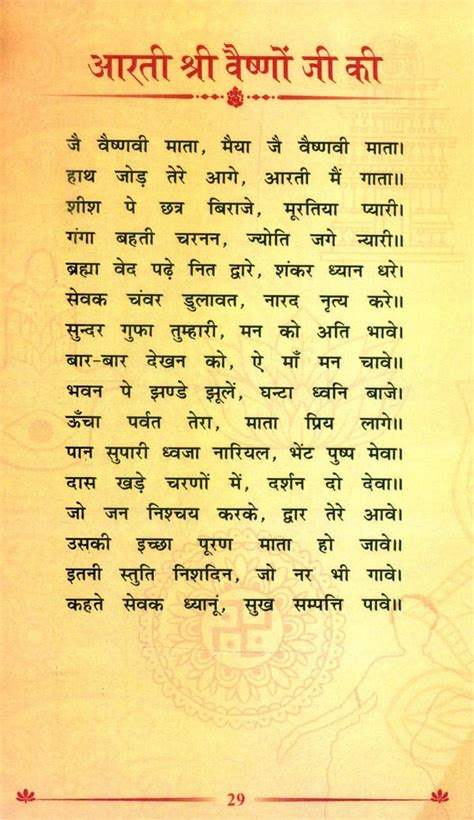 आरती श्री वैष्णों जी की
जै वैष्णवी माता, मैया जै वैष्णवी माता।
हाथ जोड़ तेरे आगे, आरती मैं गाता॥
शीश पे छत्र बिराजे, मूरतिया प्यारी।
गंगा बहती चरनन, ज्योति जगे न्यारी॥
ब्रह्मा वेद पढ़े नित द्वारे, शंकर ध्यान धरे।
सेवक चंवर डुलावत, नारद नृत्य करे॥
सुन्दर गुफा तुम्हारी, मन को अति भावे।
बार-बार देखन को, ऐ माँ मन चावे॥
भवन पे झण्डे झूलें, घन्टा ध्वनि बाजे।
ऊँचा पर्वत तेरा, माता प्रिय लागे॥
पान सुपारी ध्वजा नारियल, भेंट पुष्प मेवा।
दास खड़े चरणों में, दर्शन दो देवा॥
जो जन निश्चय करके, द्वार तेरे आवे।
उसकी इच्छा पूरण माता हो जावे॥
इतनी स्तुति निशदिन, जो नर भी गावे।
कहते सेवक ध्यानूं, सुख सम्पत्ति पावे॥
29